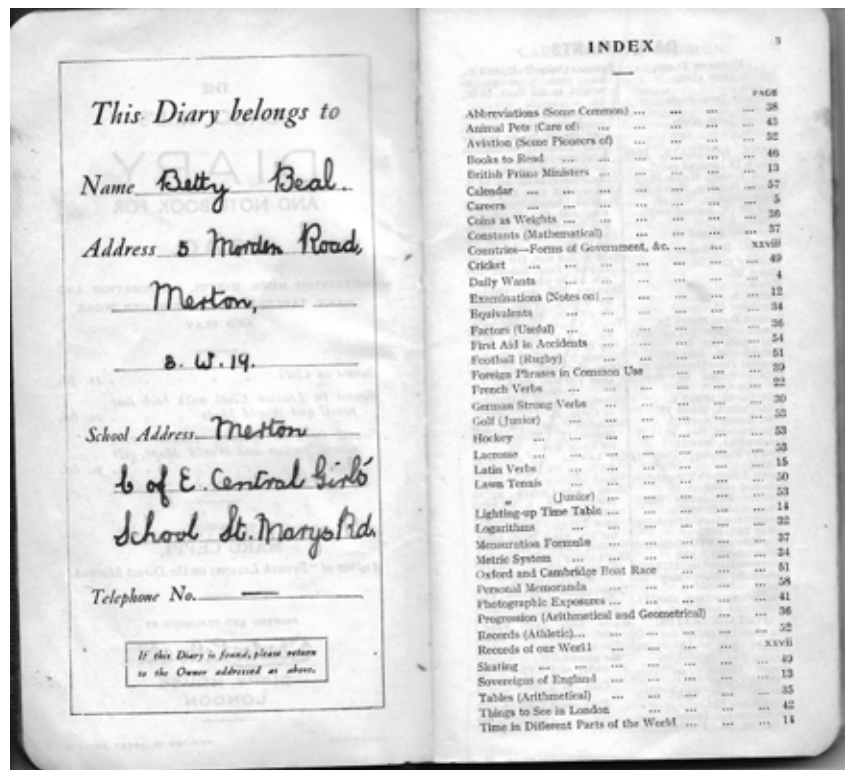 This Diary belongs to
Name Betty Beal.
Address 5 Morden Road,
Merton,
S.W.19.
School Address Merton
C of E. Central Girls'
School St. Marys Rd.
Telephone No. —
If this Diary is found, please return
to the Owner addressed as above.
INDEX 3
PAGE
Abbreviations (Some Common) ... ... ... ... 38
Animal Pets (Care of) ... ... ... ... ... 43
Aviation (Some Pioneers of) ... ... ... ... 52
Books to Read ... ... ... ... ... ... 46
British Prime Ministers ... ... ... ... ... 13
Calendar ... ... ... ... ... ... 57
Careers ... ... ... ... ... ... 5
Coins as Weights ... ... ... ... ... ... 36
Constants (Mathematical) ... ... ... ... 37
Countries—Forms of Government, &c. ... ... xxviii
Cricket ... ... ... ... ... ... 49
Daily Wants ... ... ... ... ... ... 4
Examinations (Notes on) ... ... ... ... ... 12
Equivalents ... ... ... ... ... ... 34
Factors (Useful) ... ... ... ... ... ... 36
First Aid in Accidents ... ... ... ... ... 54
Football (Rugby) ... ... ... ... ... 51
Foreign Phrases in Common Use ... ... ... 39
French Verbs ... ... ... ... ... ... 22
German Strong Verbs ... ... ... ... ... 30
Golf (Junior) ... ... ... ... ... ... 53
Hockey ... ... ... ... ... ... 53
Lacrosse ... ... ... ... ... ... 53
Latin Verbs ... ... ... ... ... ... 15
Lawn Tennis ... ... ... ... ... ... 50
„ (Junior) ... ... ... ... ... 53
Lighting-up Time Table ... ... ... ... ... 14
Logarithms ... ... ... ... ... ... 32
Mensuration Formulæ ... ... ... ... ... 37
Metric System ... ... ... ... ... ... 34
Oxford and Cambridge Boat Race ... ... ... 51
Personal Memoranda ... ... ... ... ... 58
Photographic Exposures ... ... ... ... ... 41
Progression (Arithmetical and Geometrical) ... ... 36
Records (Athletic)... ... ... ... ... ... 52
Records of our World ... ... ... ... xxvii
Skating ... ... ... ... ... ... 49
Sovereigns of England ... ... ... ... ... 13
Tables (Arithmetical) ... ... ... ... ... 35
Things to See in London ... ... ... ... 42
Time in Different Parts of the World ... ... ... 14